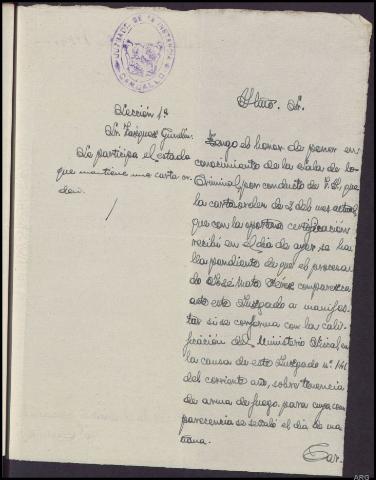 JUZGADO DE 1ª INSTANCIA
CARBALLO
Sección 1ª
Sr. Vázquez Gundín
Se participa el estado
que mantiene una carta or-
den.
Iltmo. Sr.
Tengo el honor de poner en
conocimiento de la Sala de lo
Criminal, por conducto de V.I., que
la carta orden de 2 del mes actual,
que con la oportuna certificación
recibí en el día de ayer se ha-
lla pendiente de que el procesa-
do José Mato comparezca
ante este Juzgado a manifes-
tar si se conforma con la cali-
ficación del Ministerio Fiscal en
la causa de este Juzgado nº
del corriente año, sobre tenencia
de arma de fuego, para cuya com
parecencia se señaló el día de ma-
ñana.
Car-
ARG